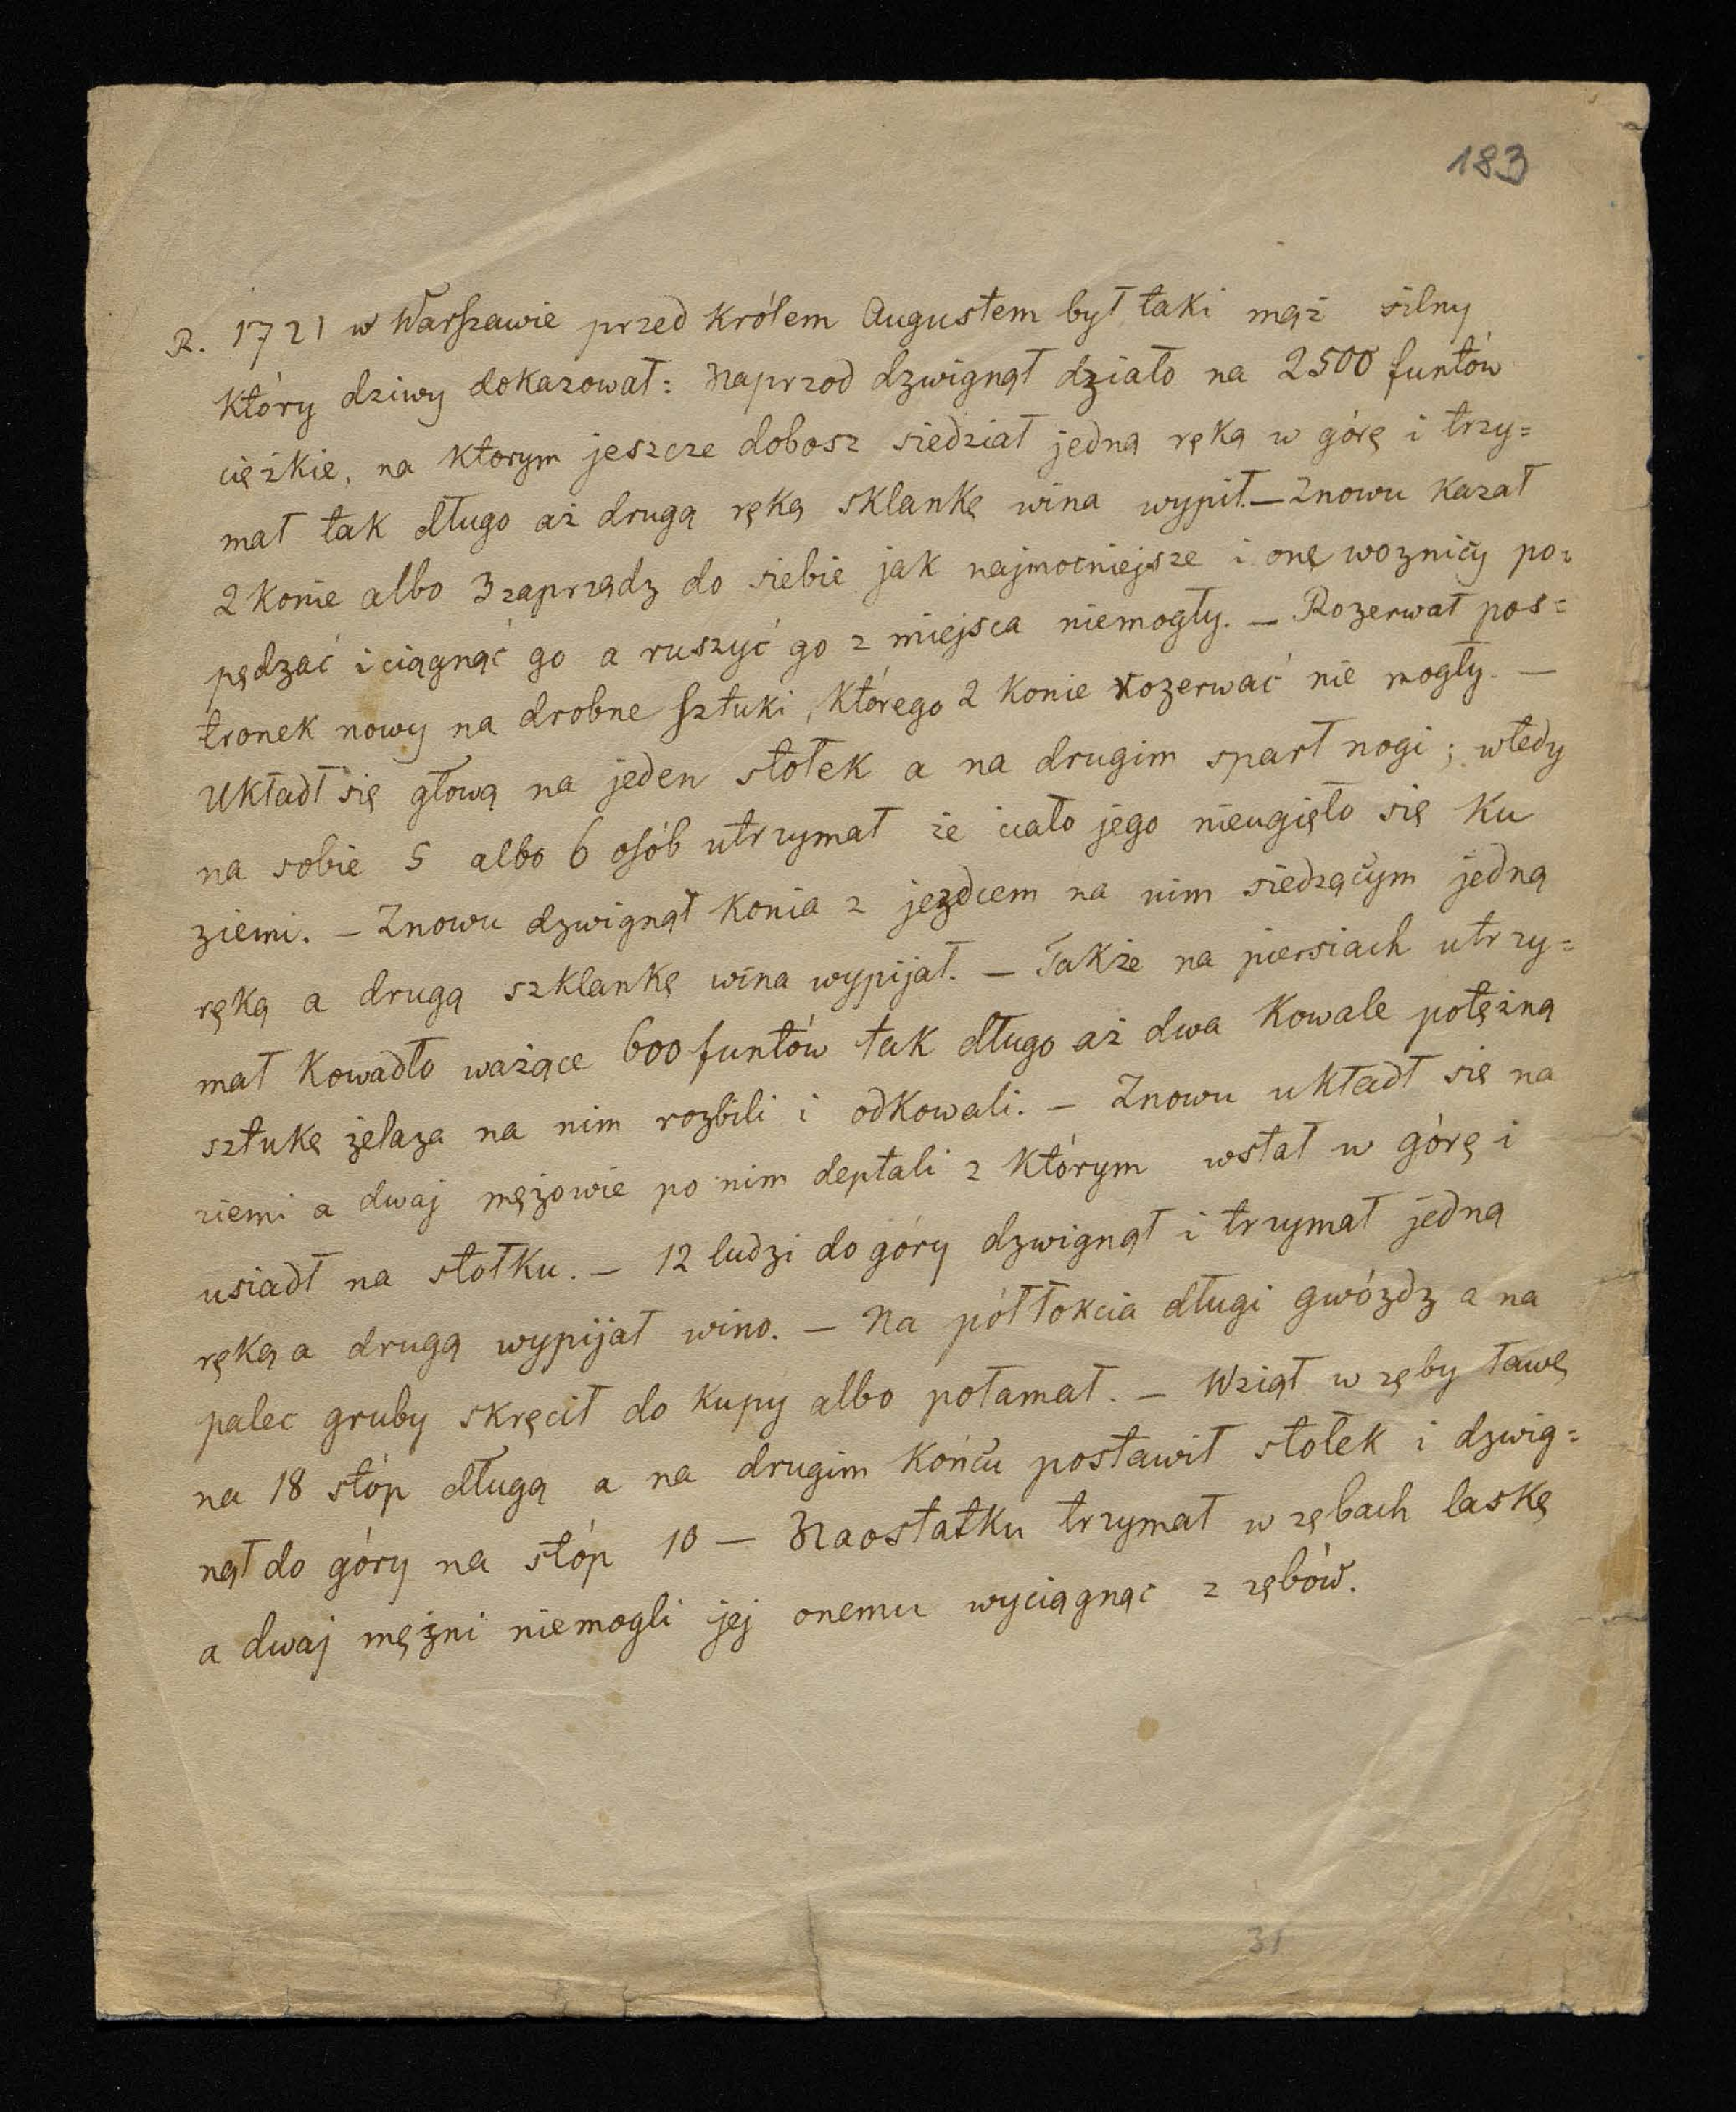 183
R. 1721 w Warszawie przed Królem Augustem był taki mąż silny
który dziwy dokazował: Naprzod dzwignął działo na 2500 funtów
ciężkie, na ktorym jeszcze dobosz siedział jedną ręką w górę i trzy=
mał tak długo aż drugą ręką sklankę wina wypił. – Znowu kazał
2 konie albo 3 zaprządz do siebie jak najmocniejsze i onę woznicy po=
pędzać i ciągnąć go a ruszyć go z miejsca niemogły. – Rozerwał pos=
tronek nowy na drobne sztuki, którego 2 konie rozerwać nie mogły. –
Układł się głową na jeden stołek a na drugim sparł nogi; wtedy
na sobie 5 albo 6 osób utrzymał że ciało jego nieugięło się ku
ziemi. – Znowu dzwignął konia z jezdcem na nim siedzącym jedną
ręką a drugą szklankę wina wypijał. – Także na piersiach utrzy=
mał kowadło ważące 600 funtów tak długo aż dwa kowale potężną
sztukę żelaza na nim rozbili i odkowali. – Znowu układł się na
ziemi a dwaj mężowie po nim deptali z którym wstał w górę i
usiadł na stołku. – 12 ludzi do góry dzwignął i trzymał jedną
ręką a drugą wypijał wino. – Na półłokcia długi gwózdz a na
palec gruby skręcił do kupy albo połamał. – Wziął w zęby ławę
na 18 stóp długą a na drugim końcu postawił stołek i dzwig=
nął do góry na stóp 10 – Naostatku trzymał w zębach laskę
a dwaj mężni niemogli jej onemu wyciągnąc z zębów.
31